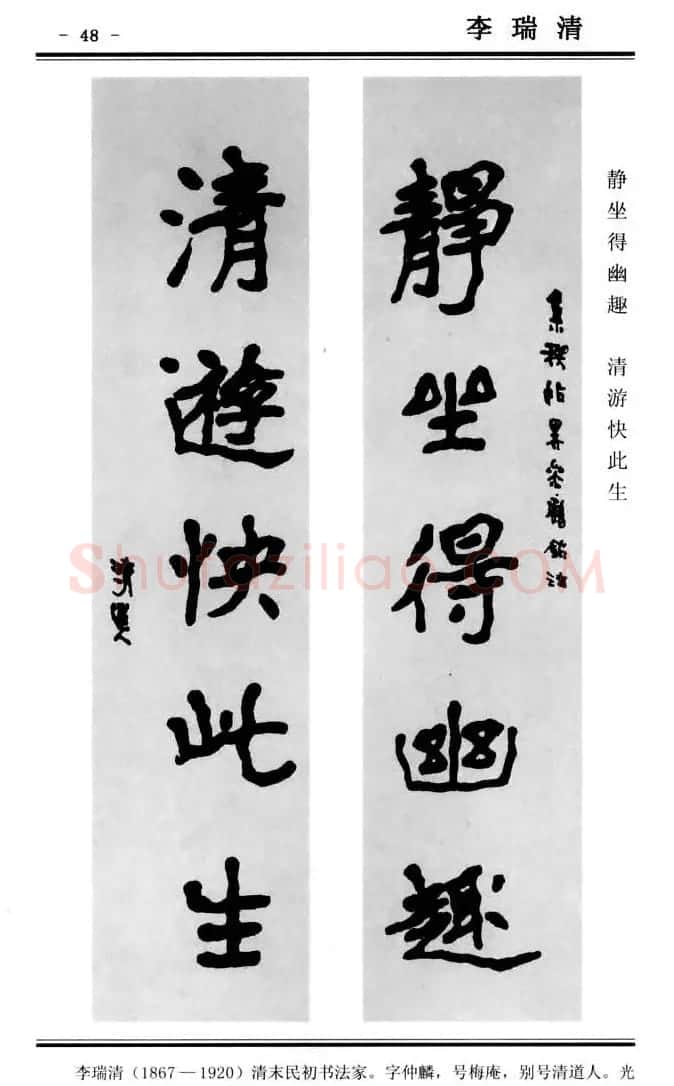 - 48 -
李瑞清
靜坐得幽趣
集禊帖畧參鶴銘法
清遊快此生
清道人
静坐得幽趣 清游快此生
Shufaziliao.COM
李瑞清（1867—1920）清末民初书法家。字仲麟，号梅庵，别号清道人。光